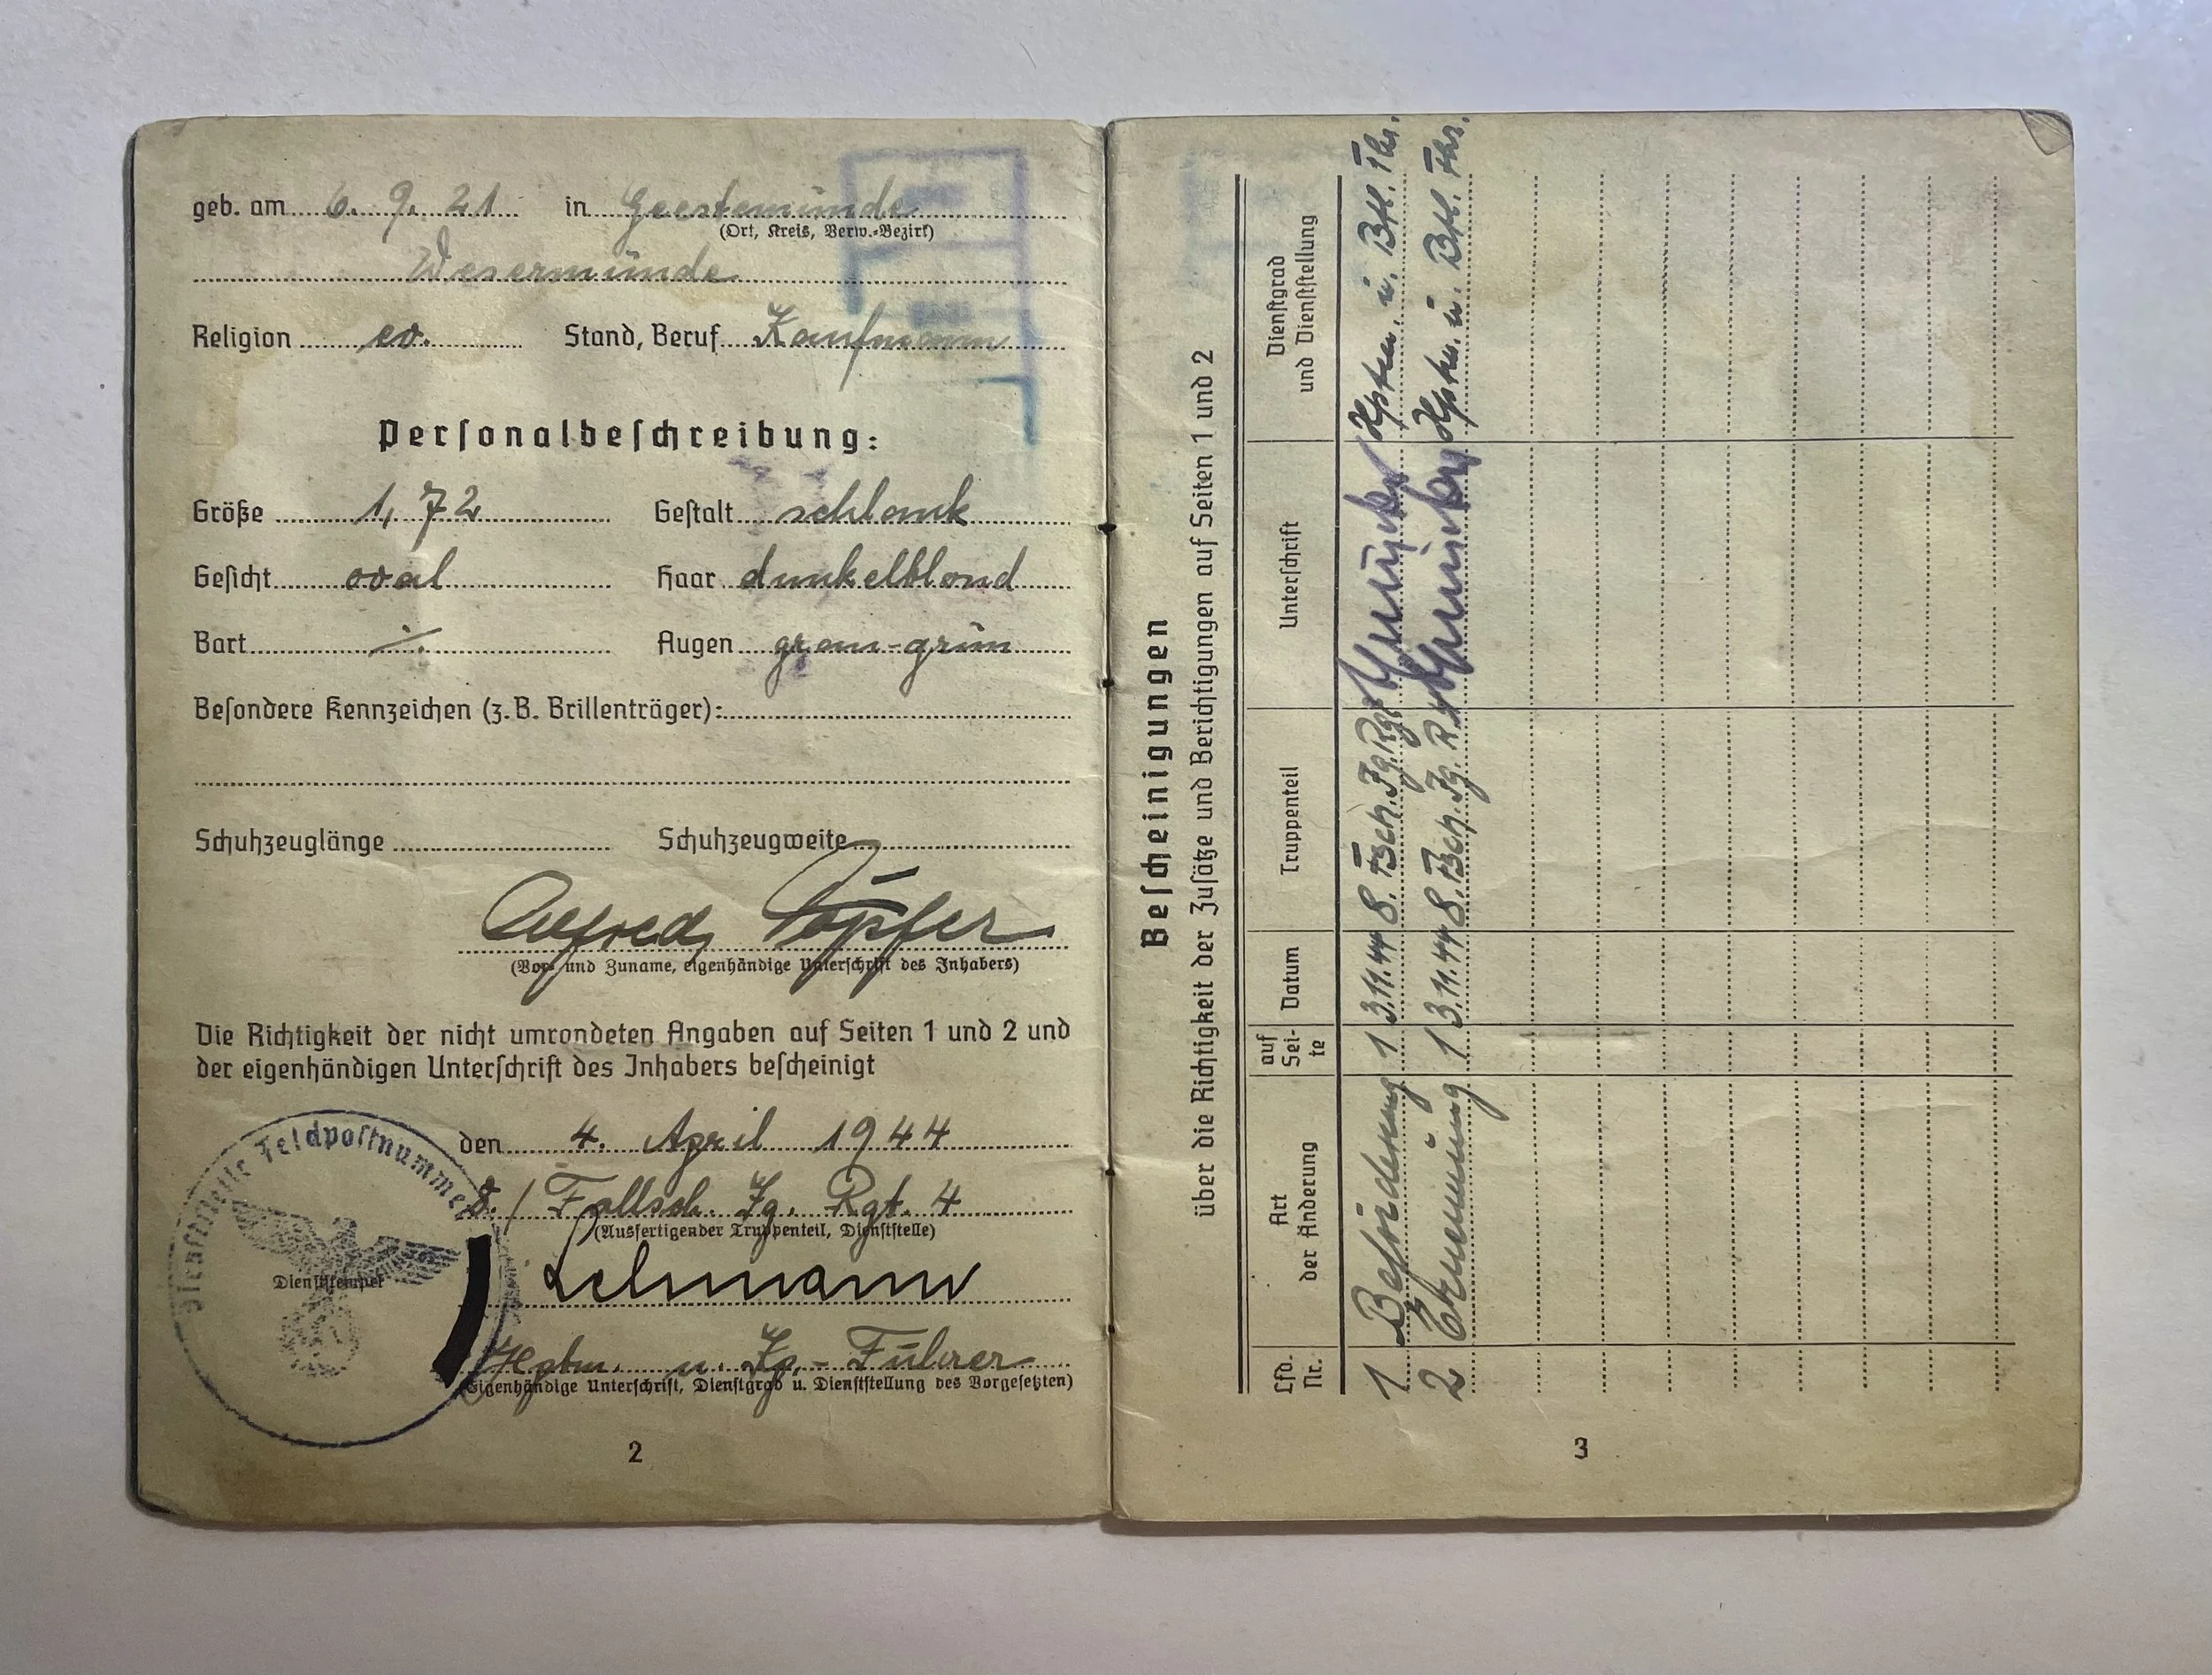 geb. am 6. 9. 21 in Geestemünde
(Ort, Kreis, Verw.-Bezirk)
Wesermünde
Religion ev. Stand, Beruf Kaufmann
Personalbeschreibung:
Größe 1,72 Gestalt schlank
Gesicht oval Haar dunkelblond
Bart ./. Augen grau-grün
Besondere Kennzeichen (z. B. Brillenträger):
Schuhzeuglänge Schuhzeugweite
Alfred Töpfer
(Vor- und Zuname, eigenhändige Unterschrift des Inhabers)
Die Richtigkeit der nicht umrandeten Angaben auf Seiten 1 und 2 und
der eigenhändigen Unterschrift des Inhabers bescheinigt
den 4. April 1944
8./Fallsch. Jg. Rgt. 4
(Ausfertigender Truppenteil, Dienststelle)
Dienststelle Feldpostnummer
Dienststempel
Lehmann
Hptm. u. Kp.-Führer
(Eigenhändige Unterschrift, Dienstgrad u. Dienststellung des Vorgesetzten)
2
Bescheinigungen
über die Richtigkeit der Zusätze und Berichtigungen auf Seiten 1 und 2
Lfd. Nr. Art der Änderung auf Sei-te Datum Truppenteil Unterschrift Dienstgrad und Dienststellung
1 Beförderung 1 3.11.44 8. Fsch. Jg. Rgt Hptm. u. Btl. Fhr.
2 Ernennung 1 3.11.44 8. Fsch. Jg. Hptm. u. Btl. Fhr.
3